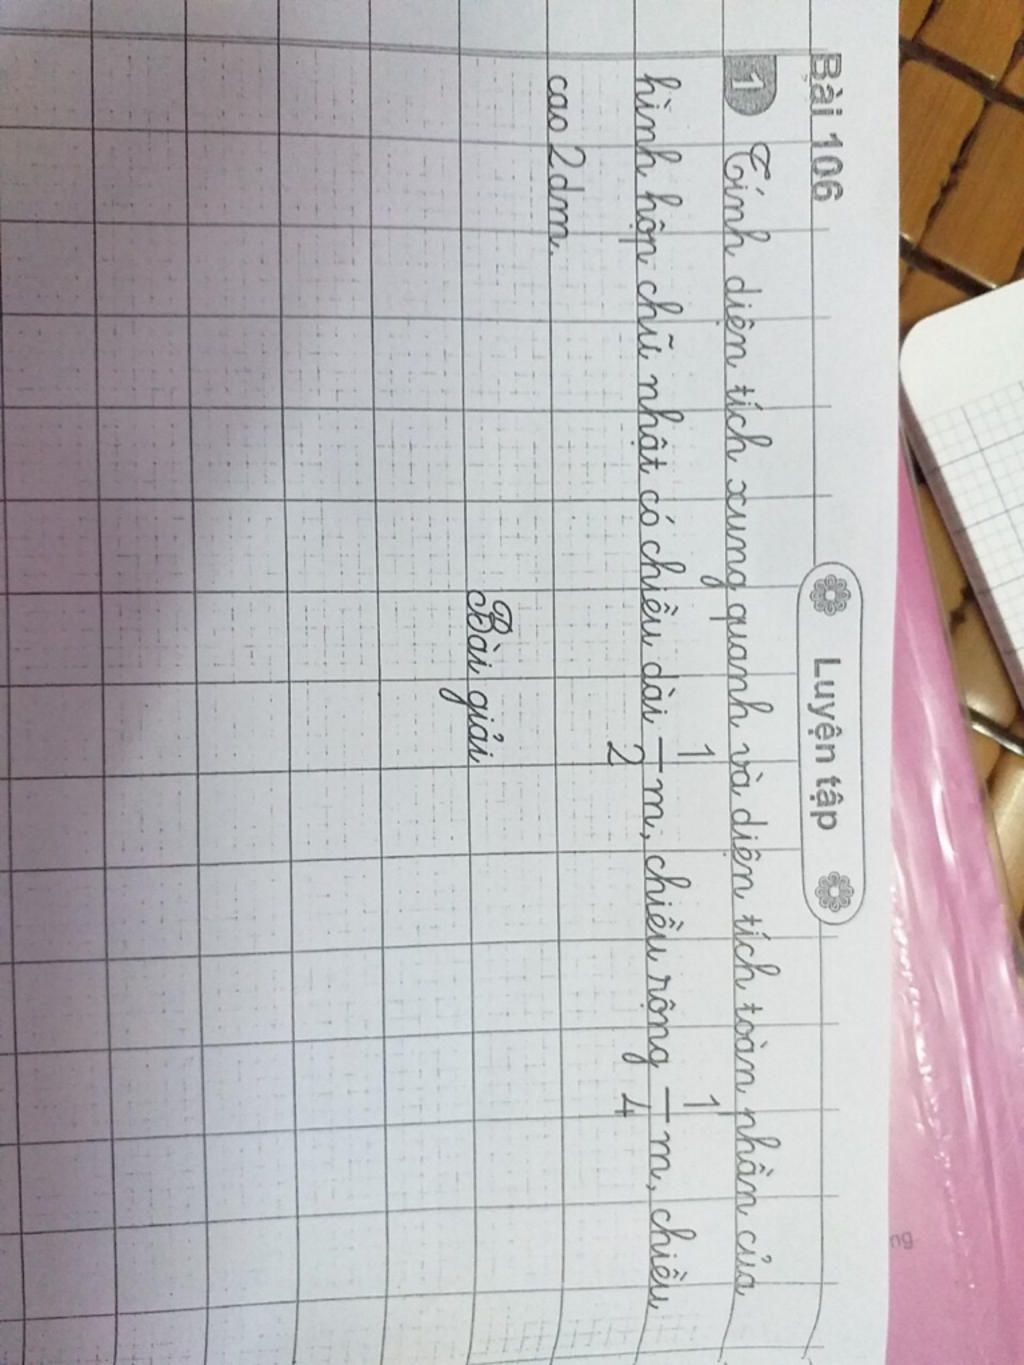 Bài 106
Luyện tập
1 Tính diện tích xung quanh và diện tích toàn phần của
hình hộp chữ nhật có chiều dài 1/2 m, chiều rộng 1/4 m, chiều
cao 2dm.
Bài giải
ng